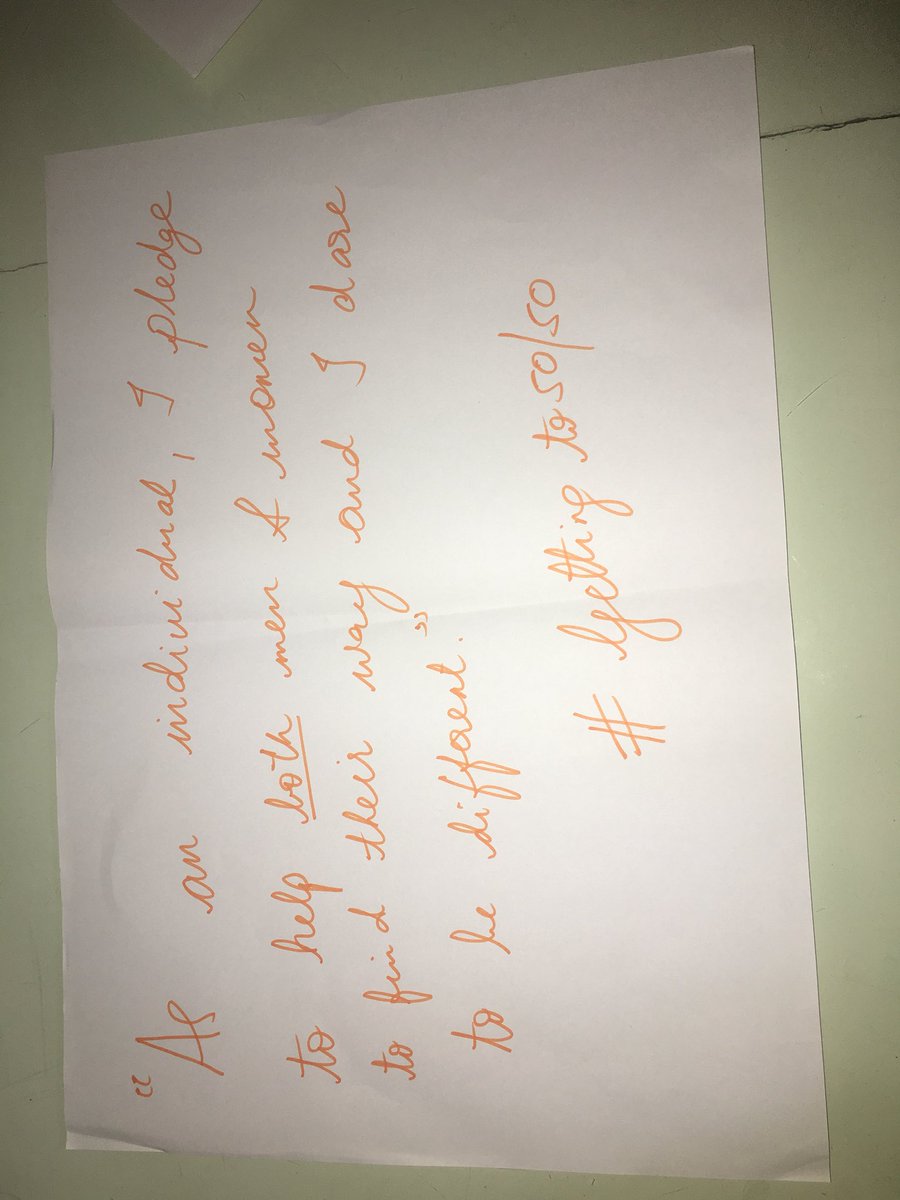 "As an individual, I pledge
to help both men & women
to find their way and I dare
to be different."
# Getting to 50/50